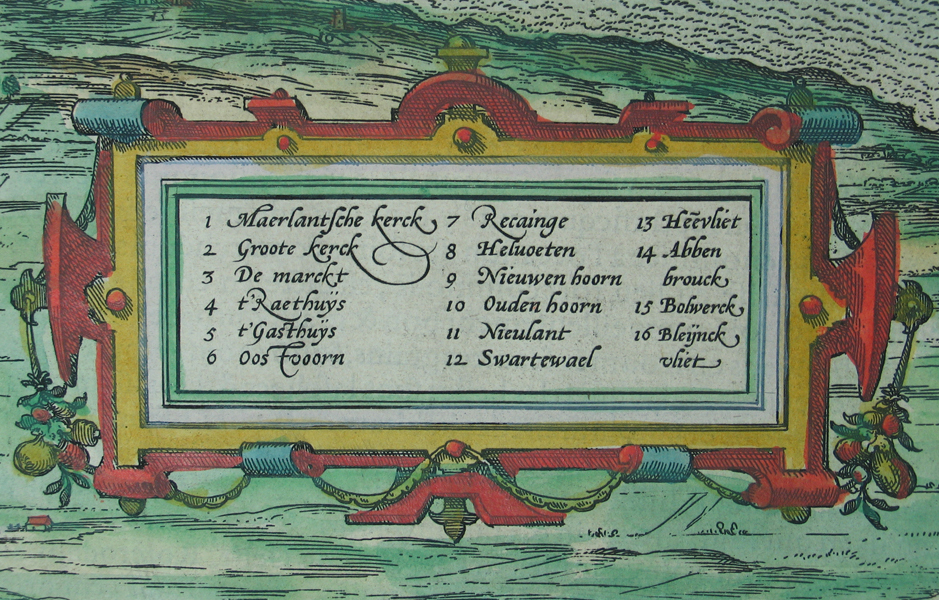 1 Maerlantsche kerck
2 Groote kerck
3 De marckt
4 t'Raethuÿs
5 t'Gasthuÿs
6 Oostvoorn
7 Recainge
8 Heluoeten
9 Nieuwen hoorn
10 Ouden hoorn
11 Nieulant
12 Swartewael
13 Heẽvliet
14 Abben
brouck
15 Bolwerck
16 Bleijnck
vliet